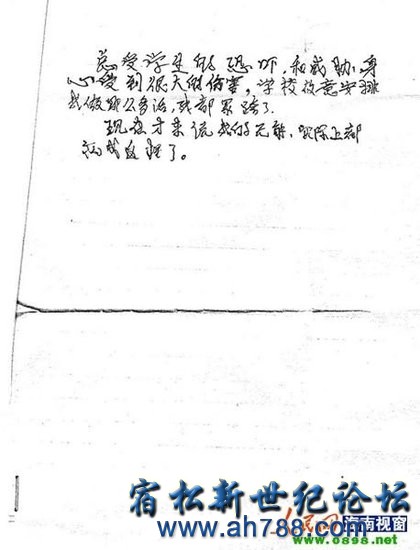 总受学生的恐吓，和威胁，身
心受到很大的伤害，学校故意安排
我做那么多活，我都累跨了。
现在才来说我的无能，实际上都
把我逼
了。
宿松新世纪论坛
www.ah788.com
人民网 海南视窗
www.0898.net